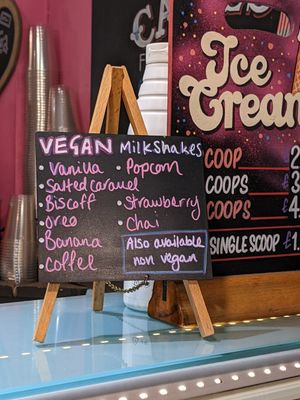 VEGAN MilkShakes
· Vanilla
· Salted caramel
· Biscoff
· oreo
· Banana
· coffee
· Popcorn
· Strawberry
· Chai
Also available
non vegan
Ice
Cream
COOP
COOPS
COOPS
SINGLE SCOOP £